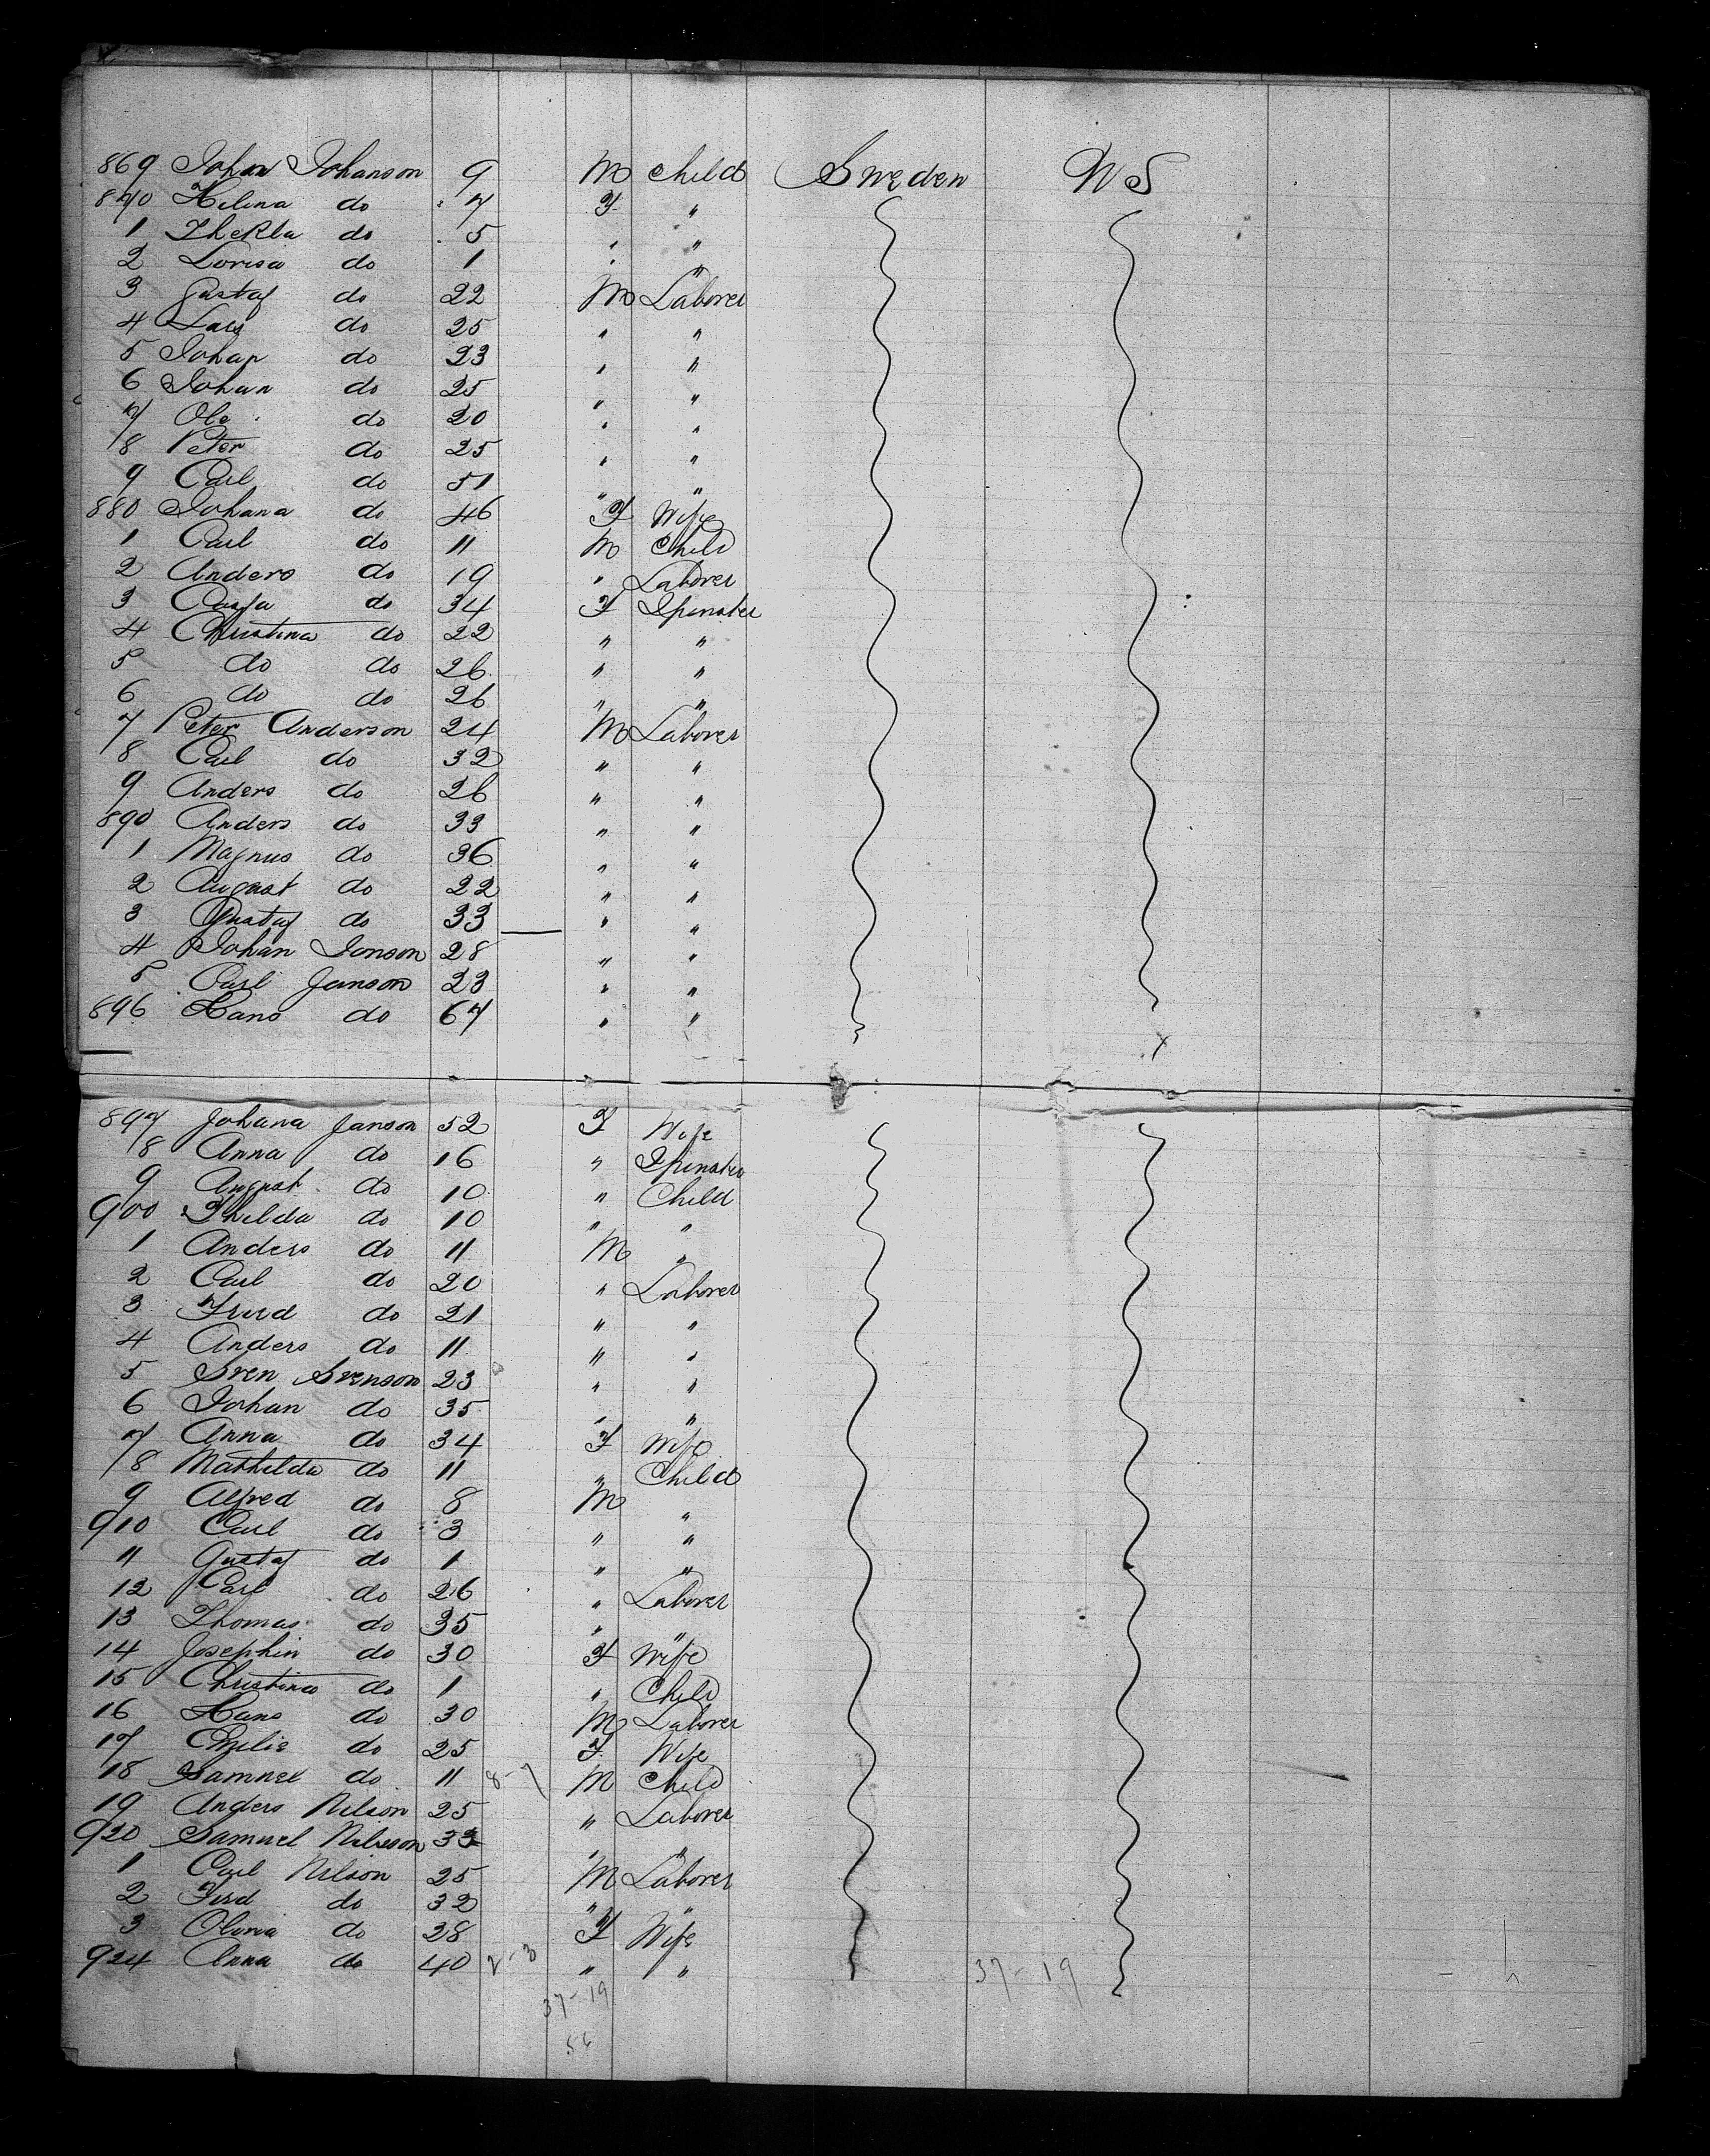 869 Johan Johanson 9 M Child Sweden US
870 Helina do 7 F "
1 Thekla do 5 " "
2 Lovisa do 1 " "
3 Gustaf do 22 M Laborer
4 Lars do 25 " "
5 Johan do 23 " "
6 Johan do 25 " "
7 Ole do 20 " "
8 Peter do 25 " "
9 Carl do 51 " "
880 Johana do 46 F Wife
1 Carl do 11 M Child
2 Anders do 19 " Laborer
3 Casja do 34 F Spinster
4 Christina do 22 " "
5 do do 26 " "
6 do do 26 " "
7 Peter Anderson 24 M Laborer
8 Carl do 32 " "
9 Anders do 26 " "
890 Anders do 33 " "
1 Magnus do 36 " "
2 August do 22 " "
3 Gustaf do 33 " "
4 Johan Jonson 28 " "
5 Carl Janson 23 " "
896 Hans do 67 " "
897 Johana Janson 52 F Wife
8 Anna do 16 " Spinster
9 August do 10 " Child
900 Thilda do 10 " "
1 Anders do 11 M "
2 Carl do 20 " Laborer
3 do 21 " "
4 Anders do 11 " "
5 Sven Svenson 23 " "
6 Johan do 35 " "
7 Anna do 34 F Wife
8 Mathilda do 11 " Child
9 Alfred do 8 M "
910 Carl do 3 " "
11 Gustaf do 1 " "
12 Carl do 26 " Laborer
13 Thomas do 35 " "
14 Josephin do 30 F Wife
15 Christina do 1 " Child
16 Hans do 30 M Laborer
17 Emilie do 25 F Wife
18 Samuel do 11 8-7 M Child
19 Anders Nilson 25 " Laborer
920 Samuel Nilsson 33 " "
1 Carl Nilson 25 M Laborer
2 Ferd do 32 " "
3 do 28 F Wife
924 Anna do 40 2-3 " " 37-19
37-19
56